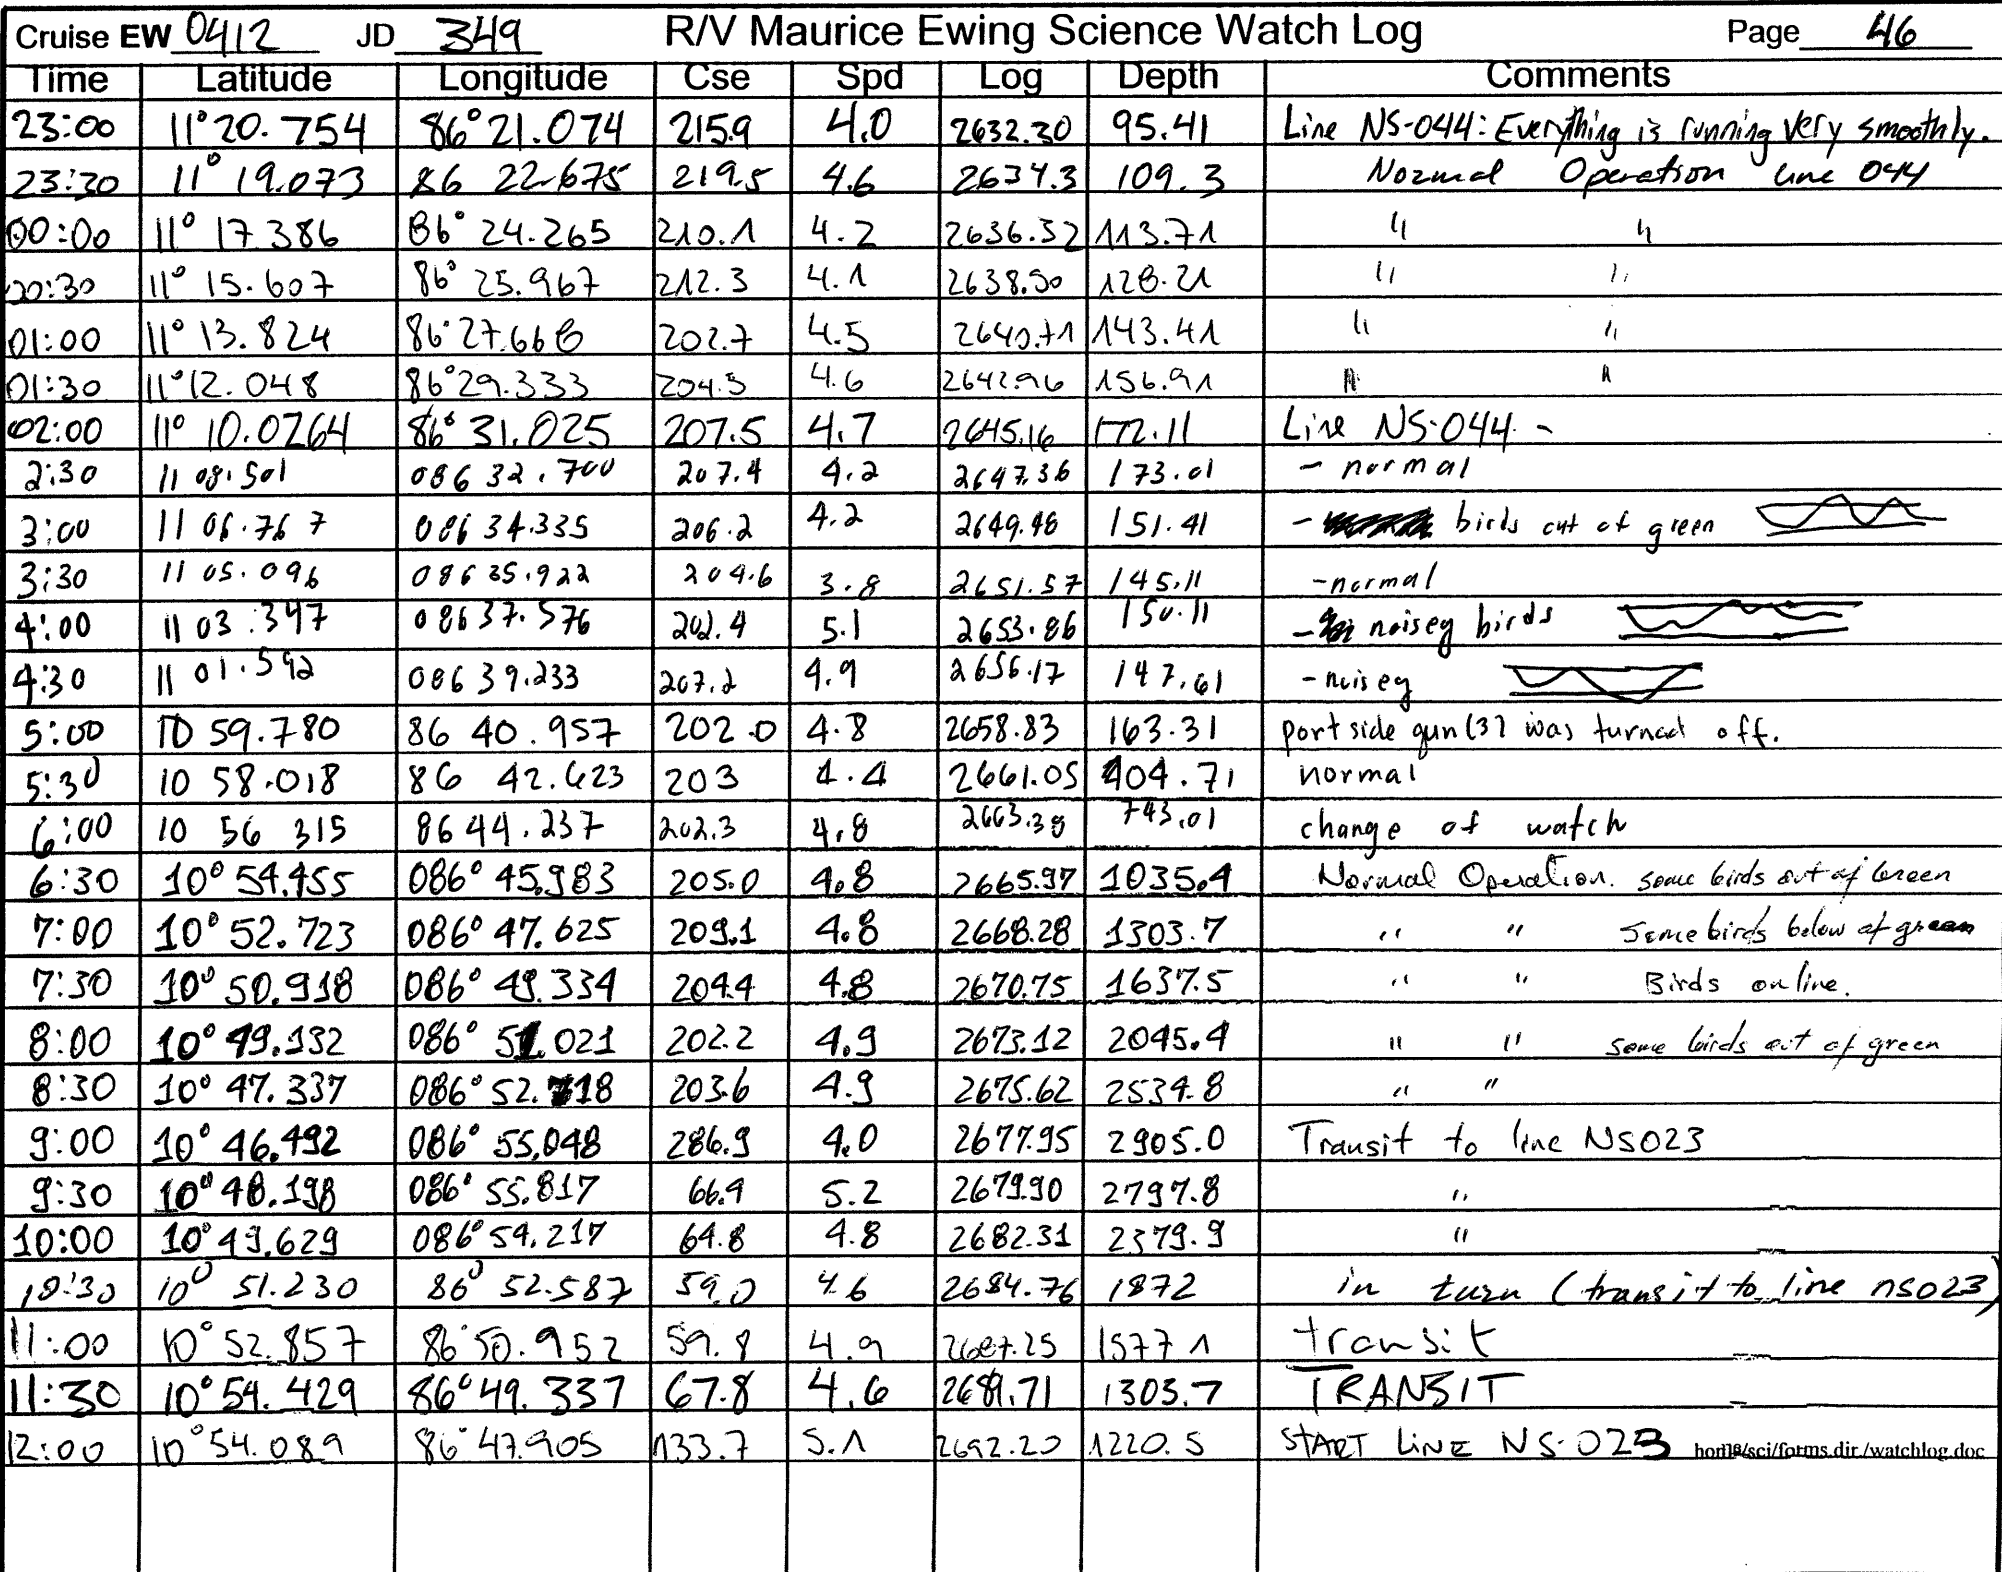 Cruise EW 0412 JD 349 R/V Maurice Ewing Science Watch Log Page 46
Time Latitude Longitude Cse Spd Log Depth Comments
23:00 11° 20.754 86° 21.074 215.9 4.0 2632.30 95.41 Line NS-044: Everything is running very smoothly.
23:30 11° 19.073 86 22.675 219.5 4.6 2634.3 109.3 Normal Operation line 044
00:00 11° 17 386 86° 24.265 210.1 4.2 2636.32 113.71 " "
00:30 11° 15.607 86° 25.967 212.3 4.1 2638.50 128.21 " "
01:00 11° 13.824 86° 27.668 202.7 4.5 2640.71 143.41 " "
01:30 11° 12.048 86° 29.333 204.5 4.6 2642.96 156.91 " "
02:00 11° 10.0764 86° 31.025 207.5 4.7 2645.16 172.11 Line NS-044 -
2:30 11 08.501 086 32.700 207.4 4.2 2647.36 173.01 - normal
3:00 11 06.767 086 34.335 206.2 4.2 2649.48 151.41 - birds out of green
3:30 11 05.096 086 35.922 204.6 3.8 2651.57 145.11 - normal
4:00 11 03.397 086 37.576 202.4 5.1 2653.86 150.11 - noisey birds
4:30 11 01.592 086 39.233 207.2 4.9 2656.17 147.61 - noisey
5:00 10 59.780 86 40.957 202.0 4.8 2658.83 163.31 port side gun (3) was turned off.
5:30 10 58.018 86 42.623 203 4.4 2661.05 404.71 normal
6:00 10 56 315 86 44.237 202.3 4.8 2663.38 743.01 change of watch
6:30 10° 54.455 086° 45.983 205.0 4.8 2665.97 1035.4 Normal Operation. some birds out of Green
7:00 10° 52.723 086° 47.625 209.1 4.8 2668.28 1303.7 " " Some birds below of green
7:30 10° 50.918 086° 49.334 204.4 4.8 2670.75 1637.5 " " Birds on line.
8:00 10° 49.132 086° 51.021 202.2 4.9 2673.12 2045.4 " " some birds out of green
8:30 10° 47.337 086° 52.718 203.6 4.9 2675.62 2534.8 " "
9:00 10° 46.492 086° 55.048 286.9 4.0 2677.95 2905.0 Transit to line NS023
9:30 10° 48.198 086° 55.817 66.4 5.2 2679.90 2797.8 "
10:00 10° 49.629 086° 54.217 64.8 4.8 2682.31 2379.9 "
10:30 10° 51.230 86° 52.587 59.0 4.6 2684.76 1872 in turn (transit to line ns023)
11:00 10° 52.857 86° 50.952 59.8 4.9 2687.25 1577 1 transit
11:30 10° 54.429 86° 49.337 67.8 4.6 2689.71 1303.7 TRANSIT
12:00 10° 54.089 86° 47.905 133.7 5.1 2692.20 1220.5 START LINE NS-023 home/sci/forms.dir./watchlog.doc